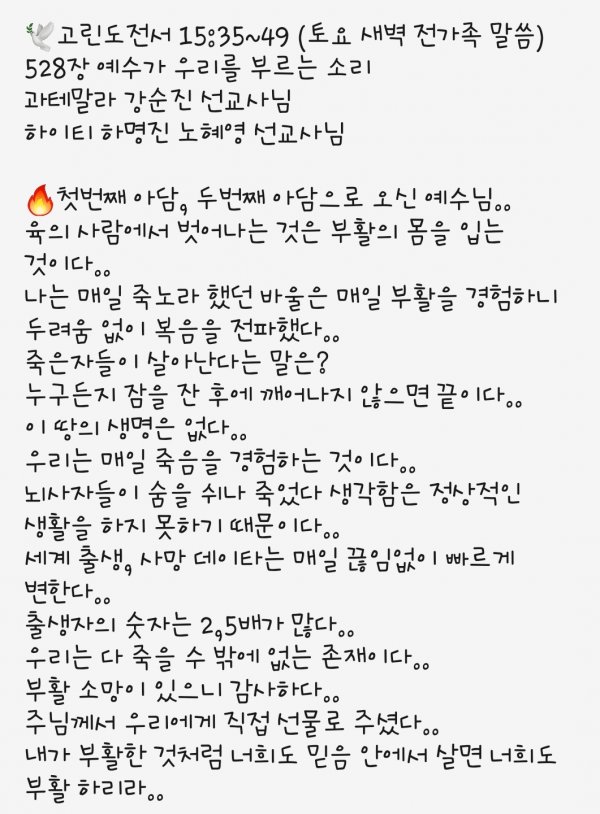 🕊️고린도전서 15:35~49 (토요 새벽 전가족 말씀)
528장 예수가 우리를 부르는 소리
과테말라 강순진 선교사님
하이티 하명진 노혜영 선교사님
🔥첫번째 아담, 두번째 아담으로 오신 예수님..
육의 사람에서 벗어나는 것은 부활의 몸을 입는
것이다..
나는 매일 죽노라 했던 바울은 매일 부활을 경험하니
두려움 없이 복음을 전파했다..
죽은자들이 살아난다는 말은?
누구든지 잠을 잔 후에 깨어나지 않으면 끝이다..
이 땅의 생명은 없다..
우리는 매일 죽음을 경험하는 것이다..
뇌사자들이 숨을 쉬나 죽었다 생각함은 정상적인
생활을 하지 못하기 때문이다..
세계 출생, 사망 데이타는 매일 끊임없이 빠르게
변한다..
출생자의 숫자는 2,5배가 많다..
우리는 다 죽을 수 밖에 없는 존재이다..
부활 소망이 있으니 감사하다..
주님께서 우리에게 직접 선물로 주셨다..
내가 부활한 것처럼 너희도 믿음 안에서 살면 너희도
부활 하리라..